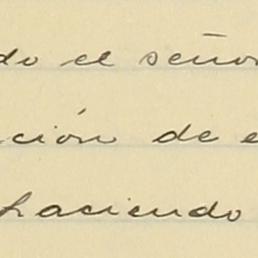 do el señor
ción de e
haciendo